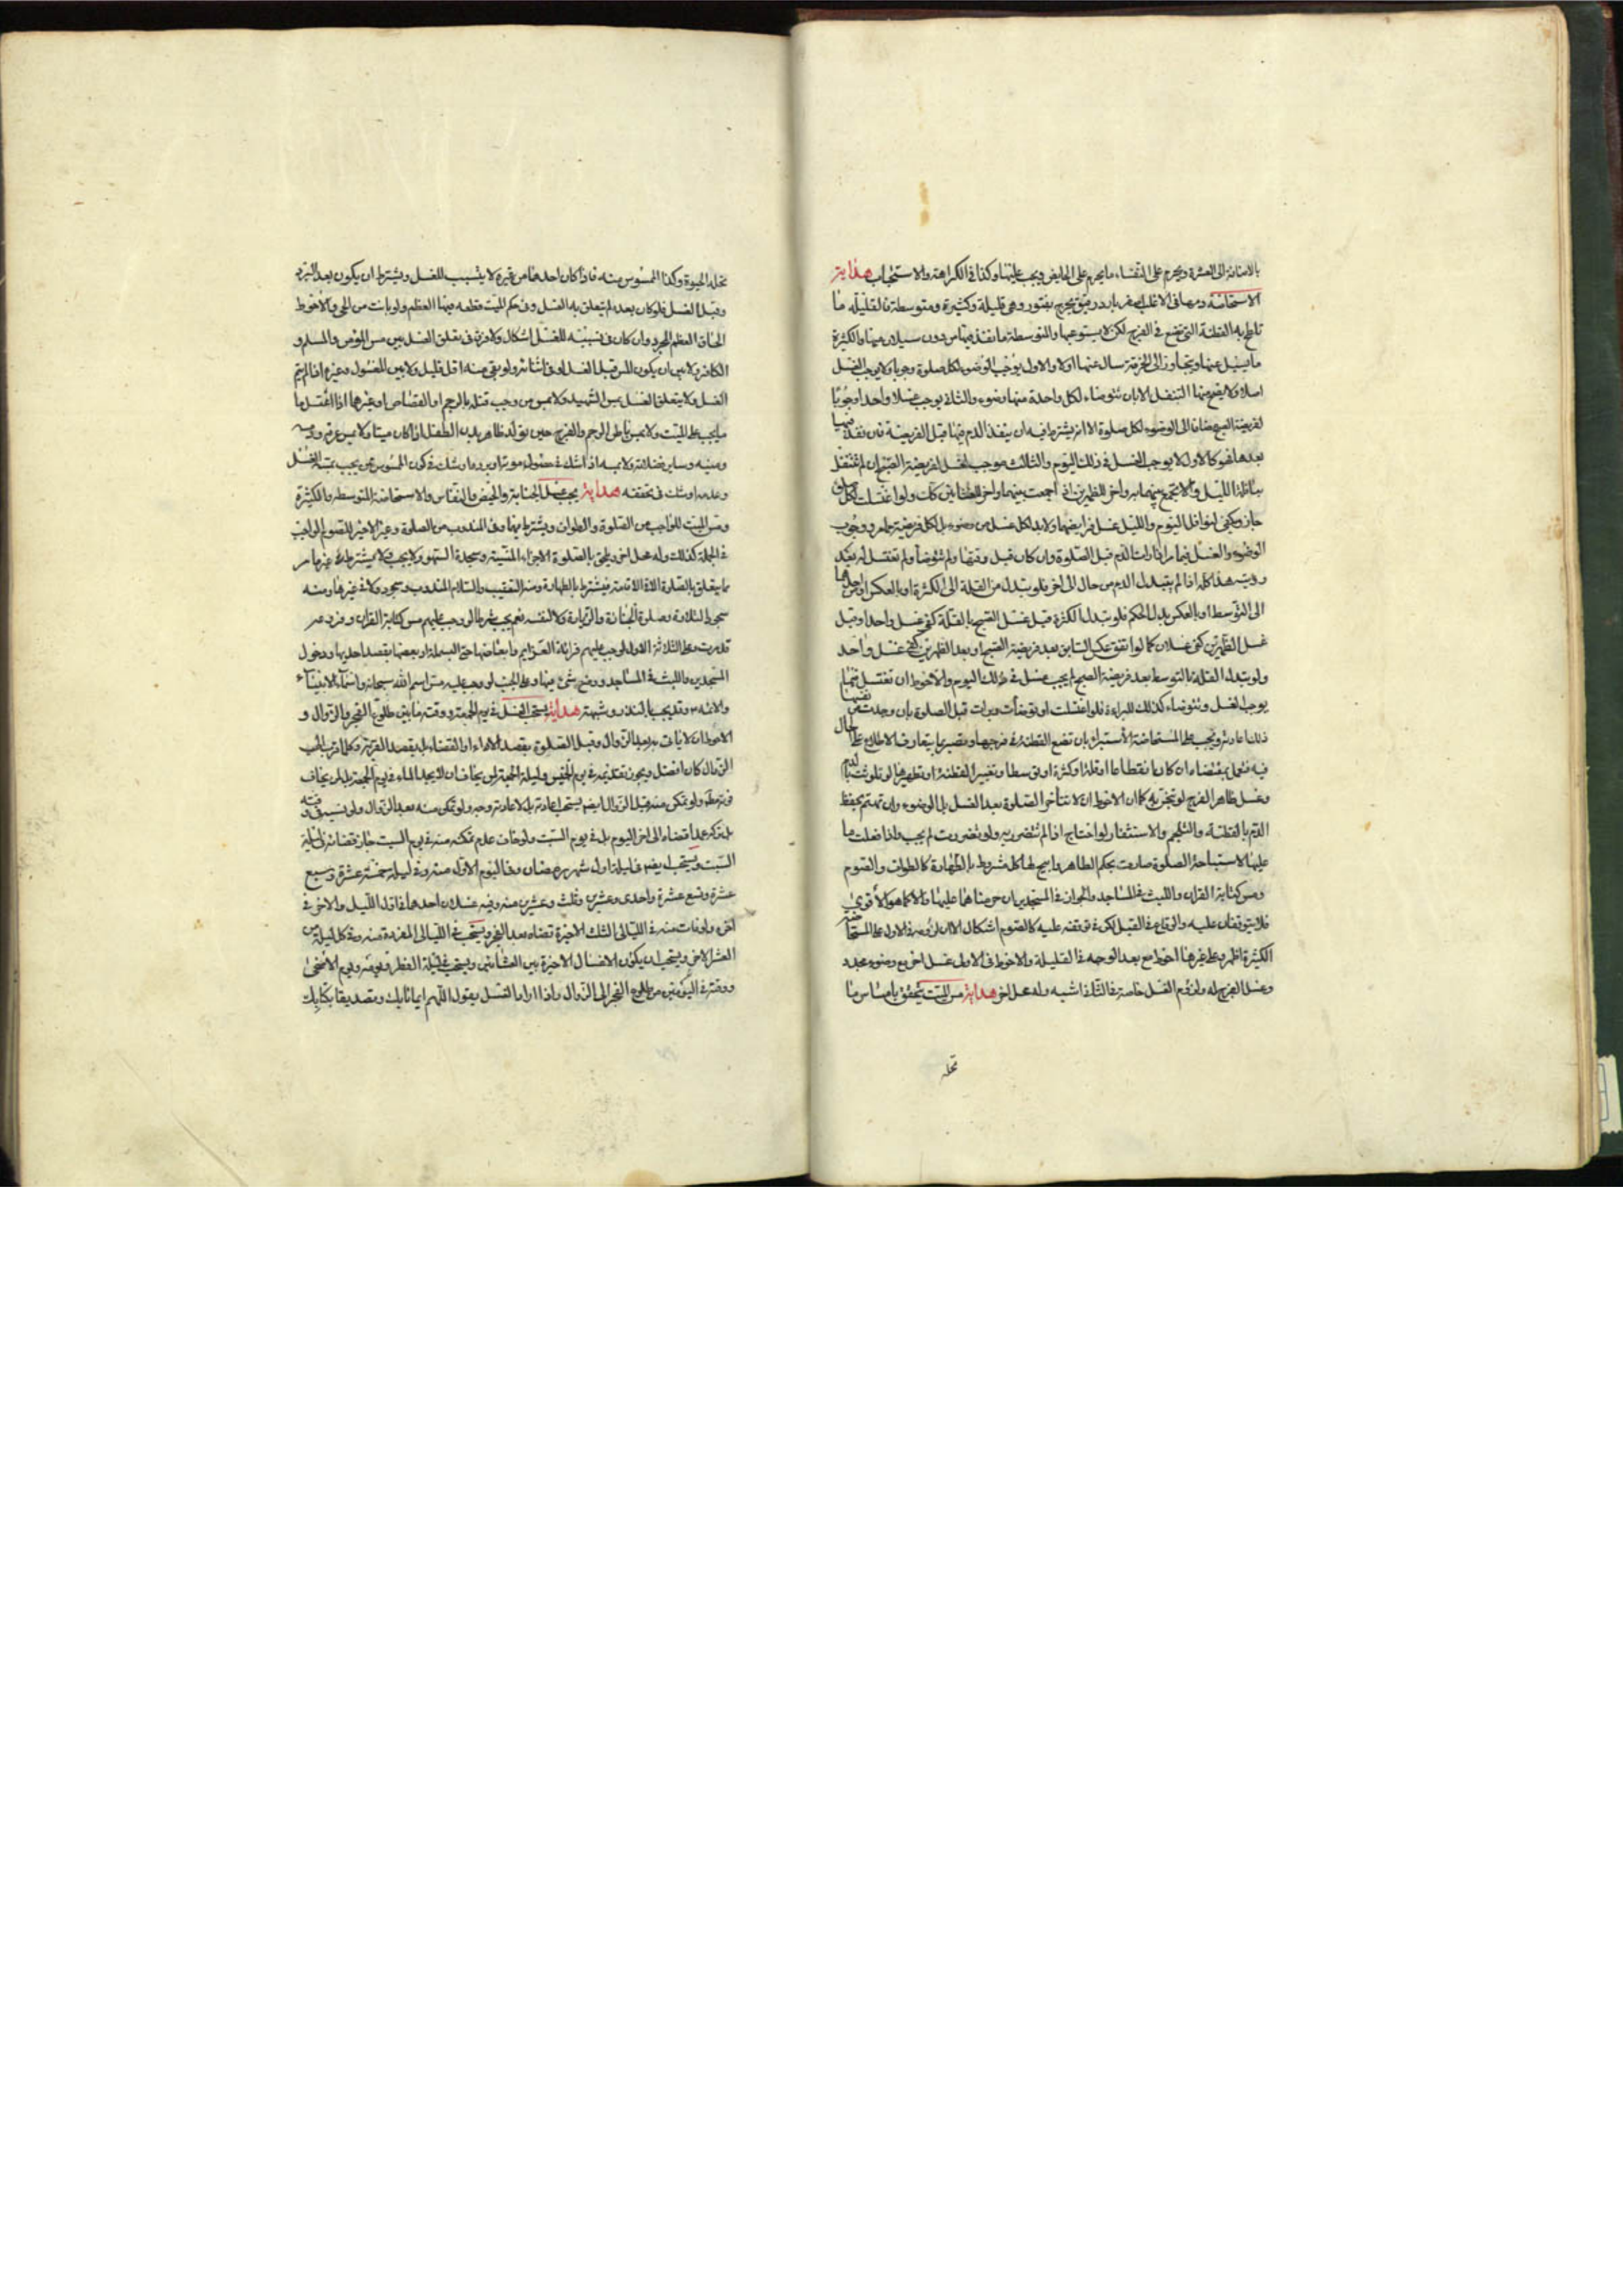 بالاضافة الى العشرة ويحرم على النفساء ما يحرم على الحايض ويجب عليها وكذا في الكراهة والاستحباب هداية
الاستحاضة دمها في الاغلب اصفر بارد رقيق يخرج بفتور وهي قليلة وكثيرة ومتوسطة فالقليلة ما
تلطخ به القطنة التي تضع في الفرج لكن لا يستوعبها والمتوسطة ما نفذ فيها من دون سيلان عنها والكثيرة
ما يسيل عنها ويتجاوز الى الخرقة سال عنها اولا والاول يوجب الوضوء لكل صلوة وجوبا ولا يوجب الغسل
اصلا ولا يصح منها التنفل الا بان تتوضاء لكل واحدة منها وضوء والثاني يوجب غسلا واحدا وجوبا
لفريضة الصبح مضافا الى الوضوء لكل صلوة الا انه يشترط فيه ان ينفذ الدم فيها قبل الفريضة فان نفذ فيها
بعدها فهو كالاول لا يوجب الغسل في ذلك اليوم والثالث موجب لغسل لفريضة الصبح ان لم تتنفل
بنافلة الليل والا تجمع بينهما به واخر للظهرين اذا اجمعت بينهما واخر للعشائين كك ولو اغتسلت لكل صلوة
جاز ويكفي لنوافل اليوم والليل غسل فرايضها ولا بد لكل غسل من وضوء بل لكل فريضة ووجوب
الوضوء والغسل فيما مر اذا رات الدم قبل الصلوة وان كان قبل وقتها ولم تتوضأ ولم تغتسل له بعد
رويته هذا كله اذا لم يتبدل الدم من حال الى اخر فلو تبدل من القلة الى الكثرة او بالعكس او من احدهما
الى التوسط او بالعكس بدل الحكم فلو تبدل الكثرة قبل غسل الصبح بالقلة كفى غسل واحد وقبل
غسل الظهرين كفى غسلان كما لو اتفق عكس السابق بعد فريضة الصبح او بعد الظهرين كفى غسل واحد
ولو تبدل القلة بالتوسط بعد فريضة الصبح لم يجب غسل في ذلك اليوم والاحوط ان تغتسل فيما
يوجب الغسل وتتوضاء كذلك للبراءة فلو اغتسلت او توضأت وبرات قبل الصلوة بان وجدت من نفسها
ذلك اعادته ويجب على المستحاضة الاستبراء بان تضع القطنة في فرجها وتصبر بما يتعارف الاطلاع على الحال
فيه فتعمل بمقتضاه ان كان انقطاعا او قلة او كثرة او توسطا وتغيير القطنة او تطهيرها لو تلوثت بالدم
وغسل ظاهر الفرج لو تنجز به كما ان الاحوط ان لا تتأخر الصلوة بعد الغسل بل الوضوء وان تهتم بحفظ
الدم بالقطنة والتلجم والاستثفار لو احتاج اذا لم تتضرر به ولو تضررت لم يجب فاذا فعلت ما
عليها لاستباحة الصلوة صارت بحكم الطاهر وابيح لها كل مشروط بالطهارة كالطواف والصوم
ومس كتابة القران واللبث في المساجد والجواز في المسجدين ان حرمناهما عليها والا كما هو الاقوى
فلا يتوقفان عليه والوقاع في القبل لكن في توقفه عليه كالصوم اشكال الا ان لزومه في الاول على المستحاضة
الكثيرة اظهر وعلى غيرها احوط مع بعد الوجه في القليلة والاحوط في الاول غسل اخر مع وضوء مجدد
وغسل الفرج له ولزوم الغسل خاصة في الثلاثة اشبه وله محل اخر هداية مس الميت يتحقق بامساس ما
تحله
تحله الحيوة وكذا الممسوس منه فاذا كان احدهما من غيره لا يتسبب للغسل ويشترط ان يكون بعد البرد
وقبل الغسل فلو كان بعده لم يتعلق به الغسل وفي حكم الميت قطعه فيها العظم ولو بانت من الحي والاحوط
الحاق العظم المجرد وان كان في تسبيبه للغسل اشكال ولا فرق في تعلق الغسل بين مس المؤمن والمسلم و
الكافر ولا بين ان يكون المس قبل الغسل او في اثنائه ولو بقي منه اقل قليل ولا بين المغسول وغيره اذا لم يتم
الغسل ولا يتعلق الغسل بمس الشهيد ولا بمس من وجب قتله بالرجم او القصاص او غيرها اذا اغتسل ما
ما يجب على الميت ولا بمس باطن الرحم والفرج حين تولد ظاهر بدن الطفل اذا كان ميتا ولا بمس عرقه ودمه
ومنيه وساير فضلاته ولا بمسه اذا شك في حصول موته او برده او شك في كون الممسوس ممن يجب بمسه الغسل
وعدمه او شك في تحققه هداية يجب غسل الجنابة والحيض والنفاس والاستحاضة المتوسطه والكثيرة
ومس الميت للواجب من الصلوة والطواف ويشترط بها وفي المندوب من الصلوة وغير الاخير للصوم الواجب
في الجملة كذلك وله محل اخر ويلحق بالصلوة الاجزاء المنسية وسجدة السهو ولا يجب ولا يشترط في غير ما مر
مما يتعلق بالصلوة الا الاقامة فيشترط بالطهارة ومنه التعقيب والسلام المندوب وسجود ولا في غيرها ومنه
سجود التلاوة وصلوة الجنازة والزيارة ولا لنفسه نعم يجب شرطا لو وجب عليهم مس كتابة القران وفرد عبر
قد مرت وعلى الثلاثة الاول لو وجب عليهم قرائة العزايم وابعاضها حتى البسملة او بعضها بقصد احديها ودخول
المسجدين واللبث في المساجد ووضع شيء فيها وعلى الجنب لو وجب عليه مس اسم الله سبحانه واسماء الانبياء
والائمه وقد يجب بالنذر وشبهه هداية يستحب الغسل في يوم الجمعة ووقته ما بين طلوع الفجر والزوال و
الاحوط ان لا ياتى به بعد الزوال وقبل الصلوة بقصد الاداء او القضاء بل بقصد القربة وكلما قرب الى
الزوال كان افضل ويجوز تقديمه في يوم الخميس وليلة الجمعة لمن يخاف ان لا يجد الماء في يوم الجمعة بل لمن يخاف
فوته مطلقا ولو تمكن منه قبل الزوال ايضا يستحب اعادته بل لاعادته وجه ولو تمكن منه بعد الزوال ولو نسيه في وقته
بل تركه عمدا قضاه الى اخر اليوم بل في يوم السبت ولو خاف عدم تمكنه منه في يوم السبت جاز قضائه في ليلة
السبت ويستحب ايضا في ليلة اول شهر رمضان وفي اليوم الاول منه وفي ليلة خمسة عشرة وسبع
عشرة وتسع عشرة واحدى وعشرين وثلث وعشرين منه وفيه غسلان احدهما في اول الليل والاخر في
اخره ولو فات منه في الليالى الثلث الاخيرة قضاه بعد الفجر ويستحب في الليالى المفردة منه وفي كل ليلة من
العشر الاخر ويستحب ان يكون الاغسال الاخيرة بين العشائين ويستحب في ليلة الفطر ويومه ويوم الاضحى
ووقته في اليومين من طلوع الفجر الى الزوال واذا اراد الغسل يقول اللهم ايمانا بك وتصديقا بكتابك